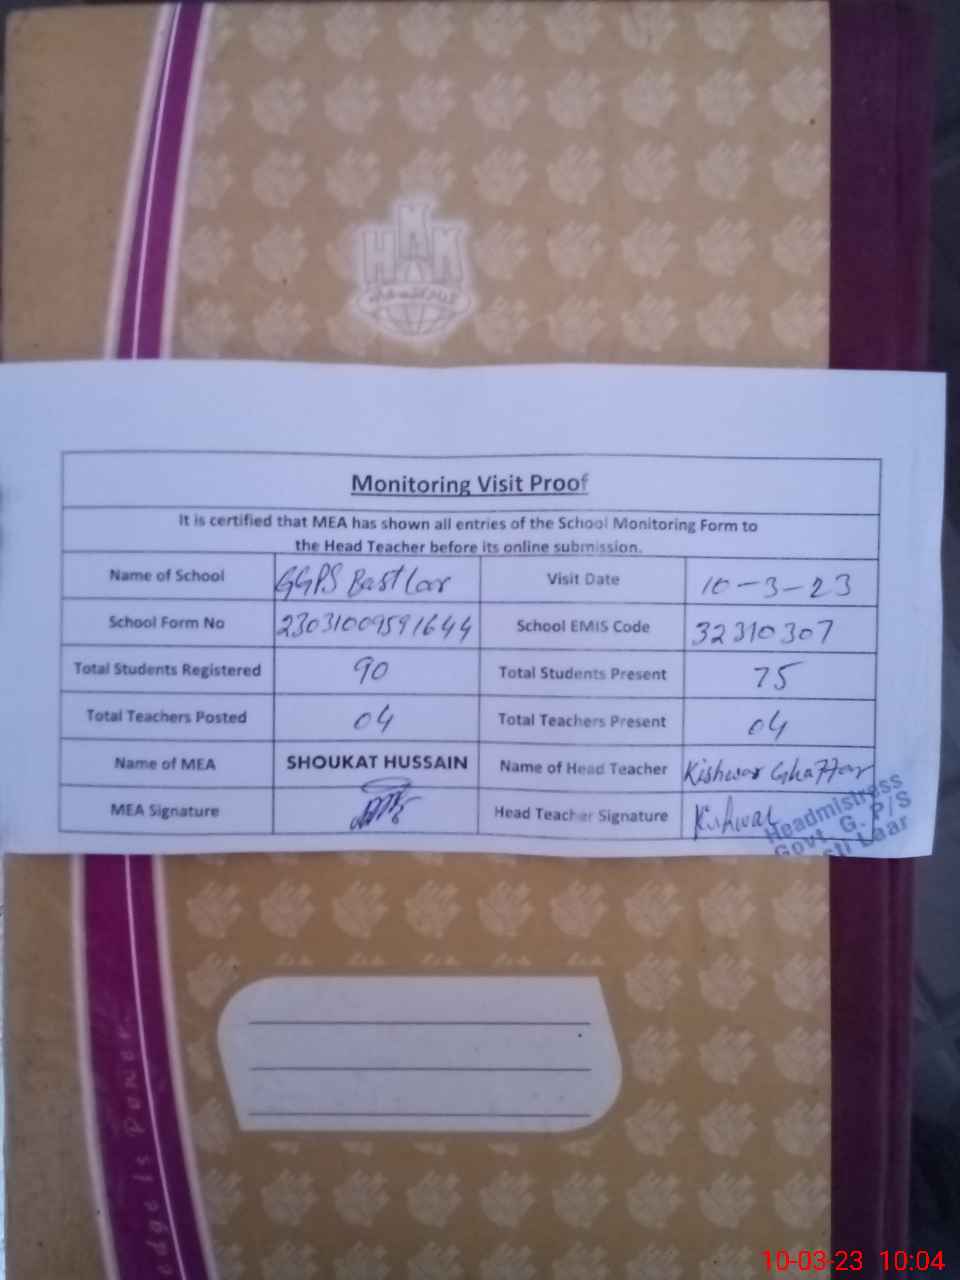 HAMK
Monitoring Visit Proof
It is certified that MEA has shown all entries of the School Monitoring Form to
the Head Teacher before its online submission.
Name of School GGPS Basti Laar Visit Date 10-3-23
School Form No 23031009591644 School EMIS Code 32310307
Total Students Registered 90 Total Students Present 75
Total Teachers Posted 04 Total Teachers Present 04
Name of MEA SHOUKAT HUSSAIN Name of Head Teacher Kishwar Ghaffar
MEA Signature Head Teacher Signature Kishwar
Headmistress
Govt. G. P/S
sti Laar
edge Is Power
10-03-23 10:04